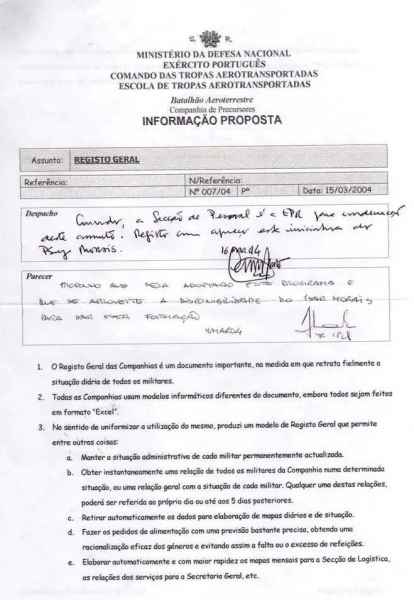 S. R.
MINISTÉRIO DA DEFESA NACIONAL
EXÉRCITO PORTUGUÊS
COMANDO DAS TROPAS AEROTRANSPORTADAS
ESCOLA DE TROPAS AEROTRANSPORTADAS
Batalhão Aeroterrestre
Companhia de Precursores
INFORMAÇÃO PROPOSTA
Assunto: REGISTO GERAL
Referência: N/Referência:
Nº 007/04 Pº Data: 15/03/2004
Despacho
a Secção de Pessoal e a para
deste assunto. Registo com apreço esta iniciativa do
Morais.
Parecer
PROPONHO QUE SEJA ADOPTADO ESTE PROGRAMA E
QUE SE APROVEITE A DISPONIBILIDADE DO MORAIS
PARA DAR ESSA FORMAÇÃO
1. O Registo Geral das Companhias é um documento importante, na medida em que retrata fielmente a
situação diária de todos os militares.
2. Todas as Companhias usam modelos informáticos diferentes do documento, embora todos sejam feitos
em formato "Excel".
3. No sentido de uniformizar a utilização do mesmo, produzi um modelo de Registo Geral que permite
entre outras coisas:
a. Manter a situação administrativa de cada militar permanentemente actualizada.
b. Obter instantaneamente uma relação de todos os militares da Companhia numa determinada
situação, ou uma relação geral com a situação de cada militar. Qualquer uma destas relações,
poderá ser referida ao próprio dia ou até aos 5 dias posteriores.
c. Retirar automaticamente os dados para elaboração de mapas diários e de situação.
d. Fazer os pedidos de alimentação com uma previsão bastante precisa, obtendo uma
racionalização eficaz dos géneros e evitando assim a falta ou o excesso de refeições.
e. Elaborar automaticamente e com maior rapidez os mapas mensais para a Secção de Logística,
as relações dos serviços para a Secretaria Geral, etc.